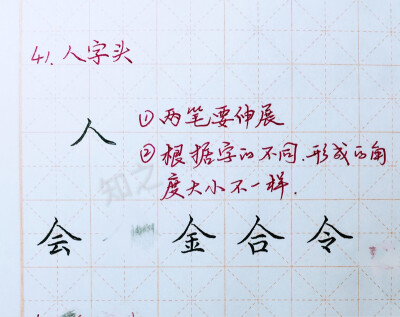 41.人字头
人
①两笔要伸展
②根据字的不同.形成的角
度大小不一样.
会 金 合 令